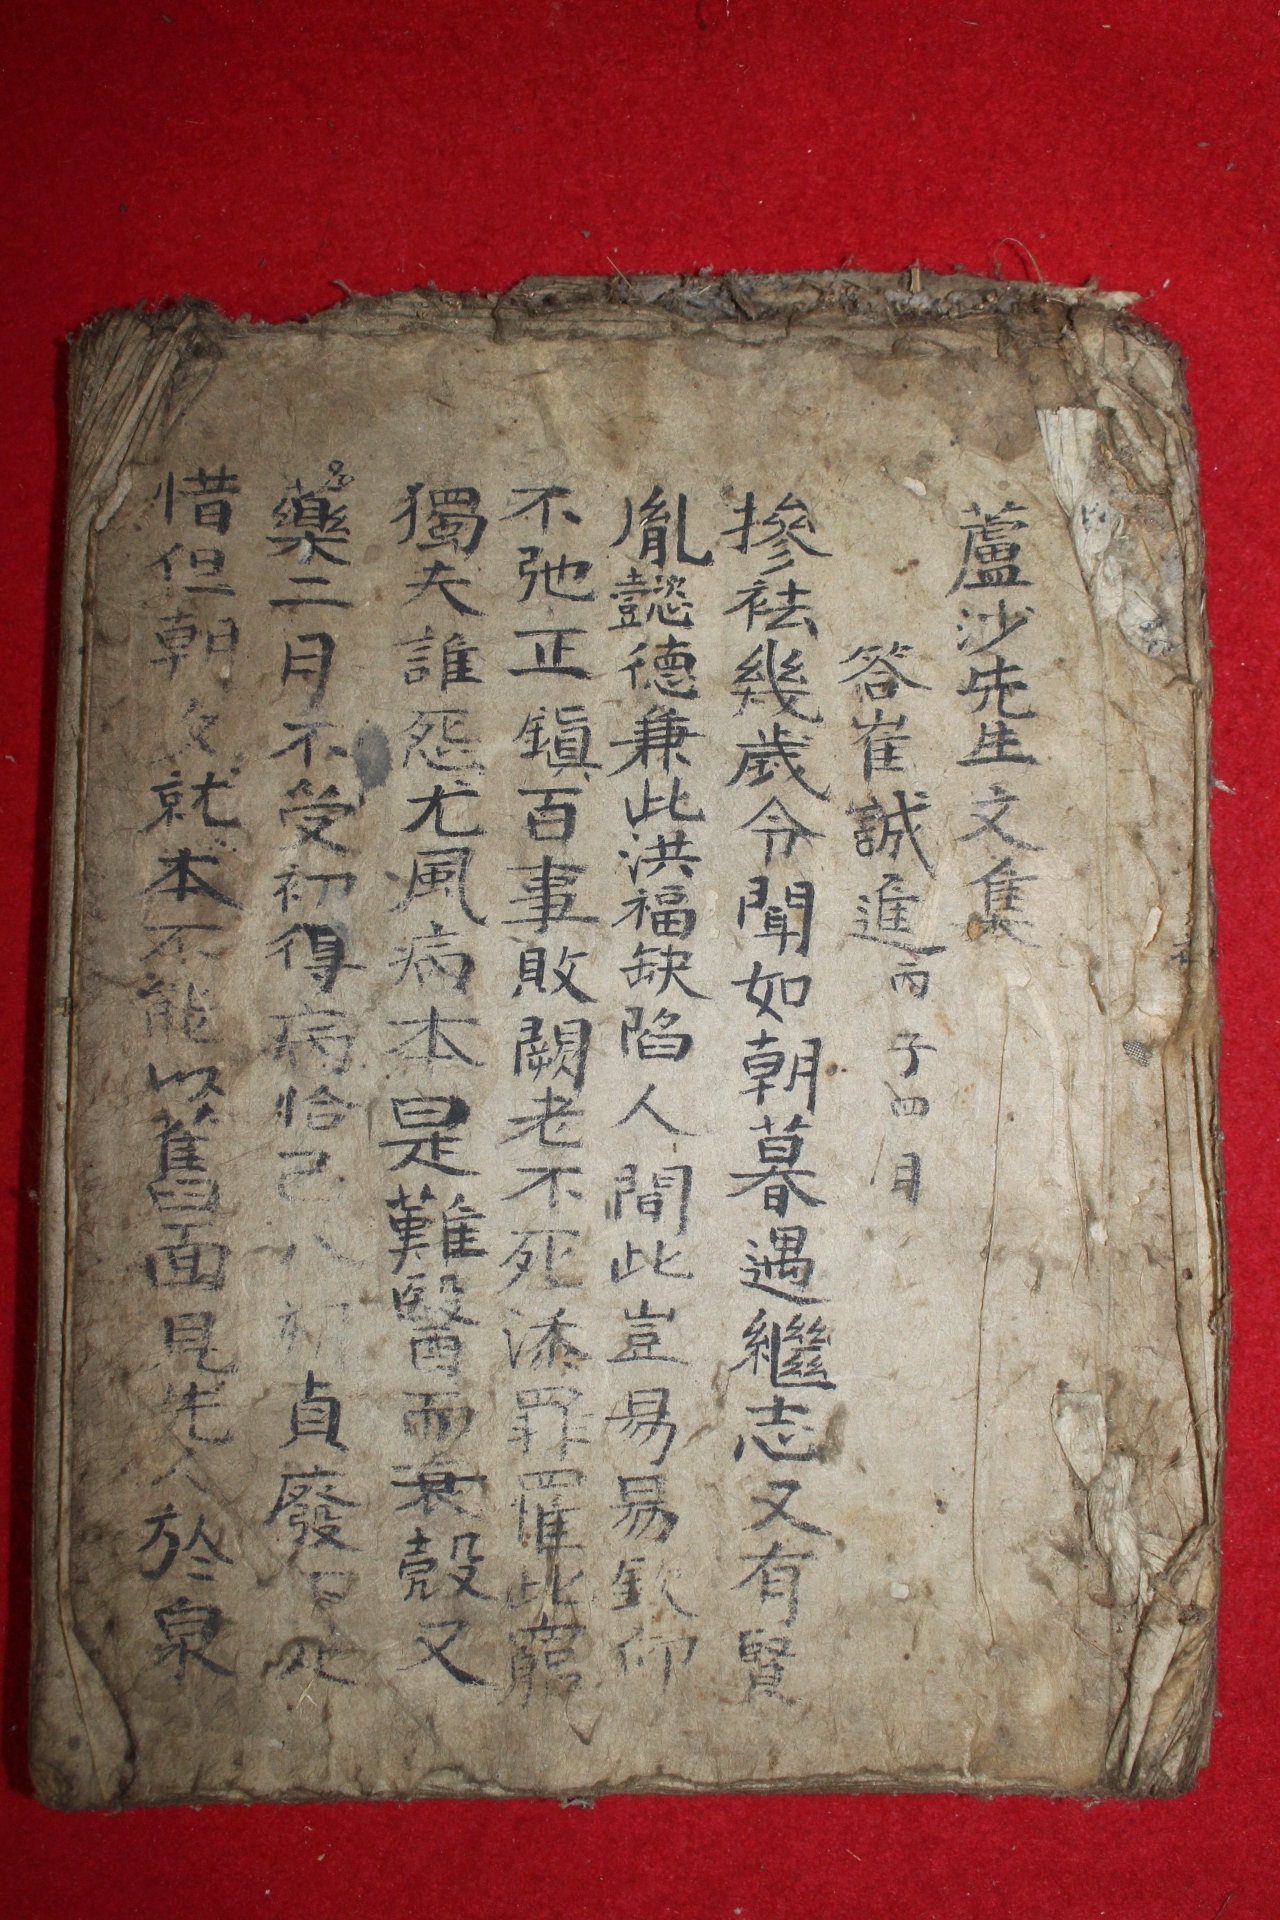 蘆沙先生文集
答崔誠進丙子四月
摻袪幾歲令聞如朝暮遇繼志又有賢
胤懿德兼此洪福缺陷人間此豈易易欽仰
不弛正鎭百事敗闕老不死添罪罹此窮
獨夫誰怨尤風病本是難醫而衰殼又
藥二月不受初得病恰己八 貞廢
惜但朝夕就木不能以舊面見先人於泉